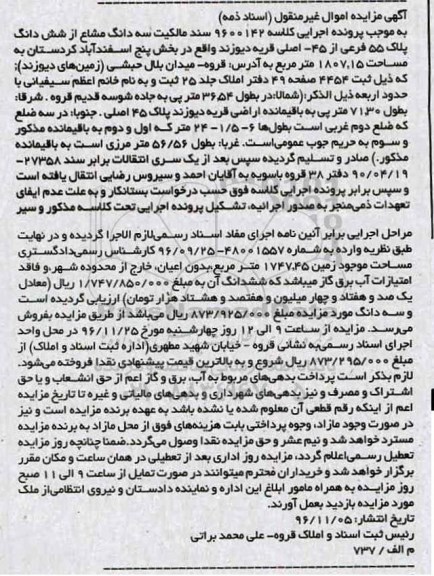 آگهی مزایده اموال غیرمنقول (اسناد ذمه)
به موجب پرونده اجرایی کلاسه ۹۶۰۰۱۴۲ سند مالکیت سه دانگ مشاع از شش دانگ
پلاک ۵۵ فرعی از ۴۵- اصلی قریه دیوزند واقع در بخش پنج اسفندآباد کردستان به
مساحت ۱۸۰۷,۱۵ متر مربع به آدرس: قروه- میدان بلال حبشی (زمین‌های دیوزند):
که ذیل ثبت ۴۴۵۴ صفحه ۴۹ دفتر املاک جلد ۲۵ ثبت و به نام خانم اعظم سیفیانی با
حدود اربعه ذیل الذکر:(شمالا:در بطول ۳۶,۵۴ متر پی به جاده شوسه قدیم قروه . شرقا:
بطول ۷۱,۳۰ متر پی به باقیمانده اراضی قریه دیوزند پلاک ۴۵ اصلی . جنوبا: در سه ضلع
که ضلع دوم غربی است بطول‌ها ۶-۱/۵- ۲۴ متر که اول و دوم به باقیمانده مذکور
و سوم به حریم جوب عمومی‌است. غربا: بطول ۵۶/۵۶ متر مرزی است به باقیمانده
مذکور.) صادر و تسلیم گردیده سپس بعد از یک سری انتقالات برابر سند ۲۷۳۵۸-
۹۰/۰۴/۱۹ دفتر ۳۸ قروه باسویه به آقایان احمد و سیروس رضایی انتقال یافته است
و سپس برابر پرونده اجرایی کلاسه فوق حسب درخواست بستانکار و به علت عدم ایفای
تعهدات ذمی‌منجر به صدور اجرائیه، تشکیل پرونده اجرایی تحت کلاسه مذکور و سیر
مراحل اجرایی برابر آئین نامه اجرای مفاد اسناد رسمی‌لازم الاجرا گردیده و در نهایت
طبق نظریه وارده به شماره ۴۸۰۰۱۵۵۷-۹۶/۰۹/۲۵ کارشناس رسمی‌دادگستری
مساحت موجود زمین ۱۷۴۷,۴۵ متر مربع،بدون اعیان، خارج از محدوده شهر،و فاقد
امتیازات آب برق گاز میباشد که ششدانگ آن به مبلغ ۱/۷۴۷/۸۵۰/۰۰۰ ریال (معادل
یک صد و هفتاد و چهار میلیون و هفتصد و هشتاد هزار تومان) ارزیابی گردیده است
و سه دانگ مورد مزایده مبلغ ۸۷۳/۹۲۵/۰۰۰ ریال می‌باشد از طریق مزایده بفروش
می‌رسد. مزایده از ساعت ۹ الی ۱۲ روز چهارشنبه مورخ ۹۶/۱۱/۲۵ در محل واحد
اجرای اسناد رسمی‌به نشانی قروه - خیابان شهید مطهری(اداره ثبت اسناد و املاک) از
مبلغ ۸۷۳/۲۹۵/۰۰۰ ریال شروع و به بالاترین قیمت پیشنهادی نقدا فروخته می‌شود.
لازم بذکر است پرداخت بدهی‌های مربوط به آب، برق و گاز اعم از حق انشعاب و یا حق
اشتراک و مصرف و نیز بدهی‌های شهرداری و بدهی‌های مالیاتی و غیره تا تاریخ مزایده
اعم از اینکه رقم قطعی آن معلوم شده یا نشده باشد به عهده برنده مزایده است و نیز
در صورت وجود مازاد، وجوه پرداختی بابت هزینه‌های فوق از محل مازاد به برنده مزایده
مسترد خواهد شد و نیم عشر و حق مزایده نقدا وصول می‌گردد.ضمنا چنانچه روز مزایده
تعطیل رسمی‌اعلام گردد، مزایده روز اداری بعد از تعطیلی در همان ساعت و مکان مقرر
برگزار خواهد شد و خریداران محترم میتوانند در صورت تمایل از ساعت ۹ الی ۱۱ صبح
روز مزایده به همراه مامور ابلاغ این اداره و نماینده دادستان و نیروی انتظامی‌از ملک
مورد مزایده بازدید بعمل آورند.
تاریخ انتشار: ۹۶/۱۱/۰۵
رئیس ثبت اسناد و املاک قروه- علی محمد براتی
م الف / ۷۳۷